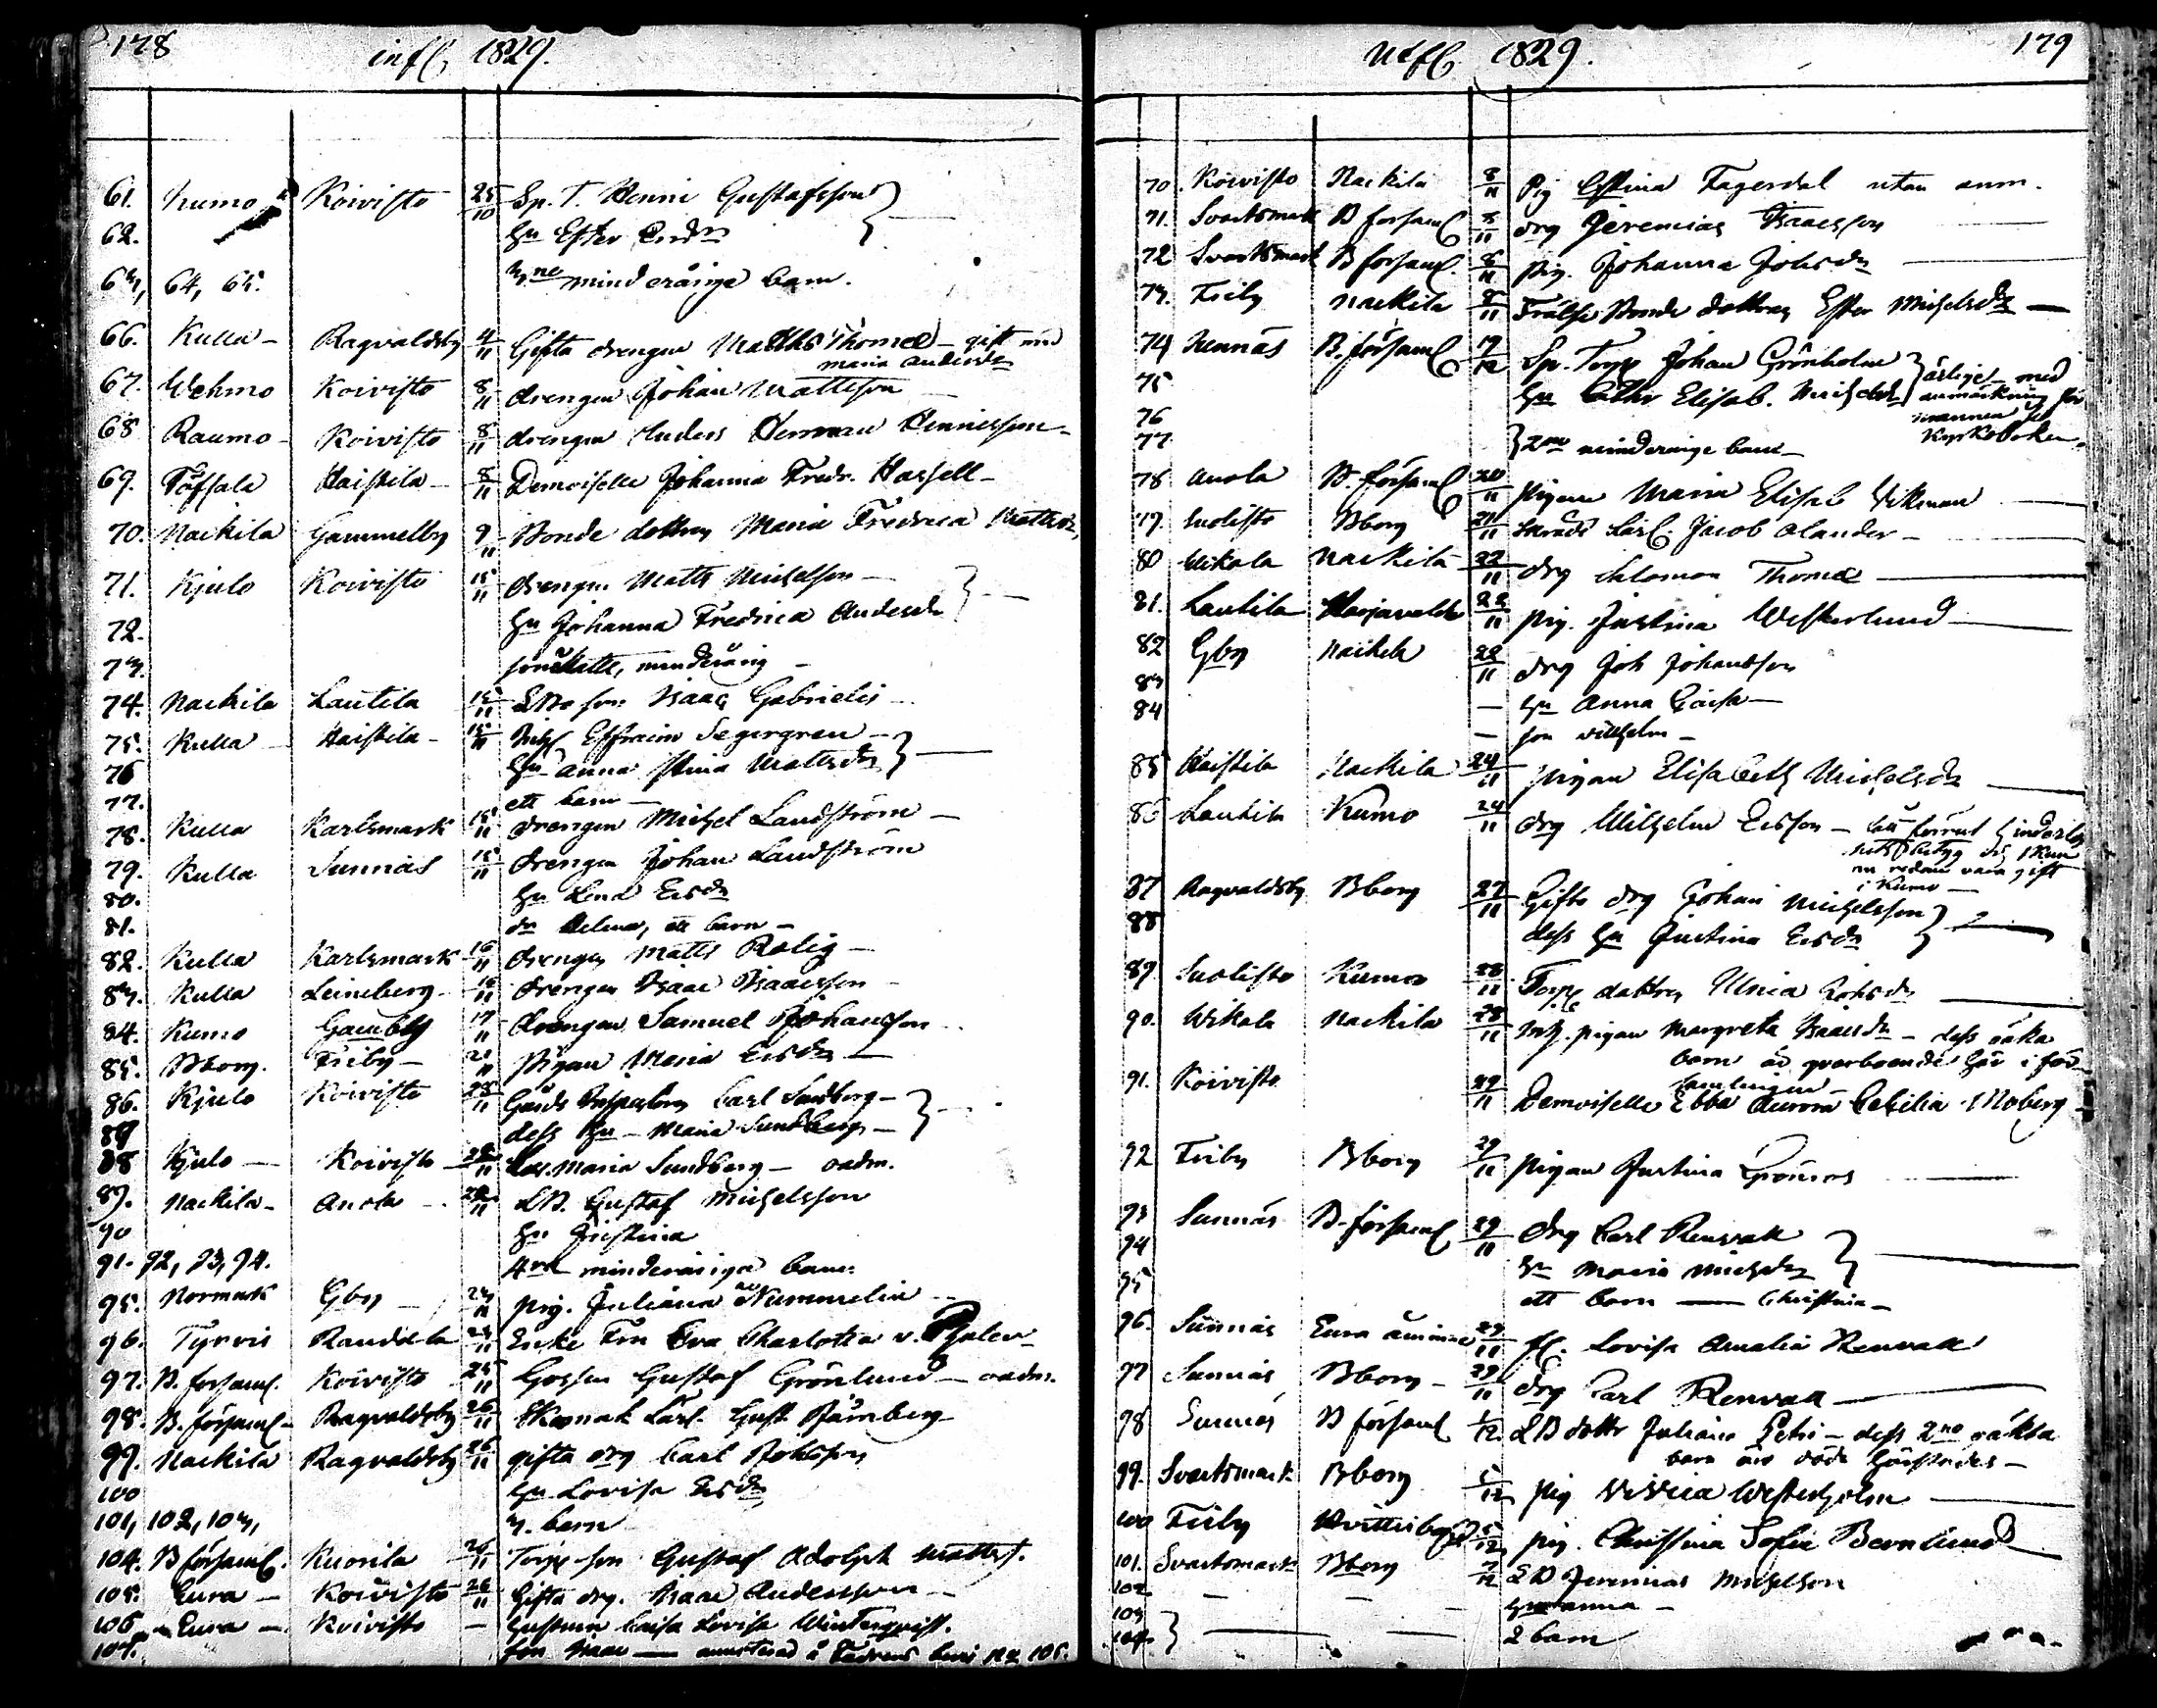 178
infl. 1829.
61. Kumo Koivisto 25/10 Sp. T. Henric Gustafsson
62. hu Ester
63, 64, 65. 3ne minderåriga barn.
66. Kulla - Ragvaldsby 4/11 Gifta drengen Matths Thomæ - gift med
maria andersdr
67. Wehmo Koivisto 8/11 drengen Johan Mattsson
68 Raumo - Koivisto 8/11 drengen Anders Herman Hennisson -
69. Töfsala Haistila - 8/11 Demoiselle Johanna Fredr. Hassell -
70. Nackila Gammelby 9/11 Bonde dottren Maria Fredrica
71. Kjulo Koivisto 15/11 drengen Matts Michelsson -
72. hu Johanna Fredrica Andersdr
73. son Matts, minderårig -
74. Nackila Lautila 15/11 son Isaac Gabrielis -
75. Kulla - Haistila - 15/11 Effraim Segergren -
76 hu anna Stina Mattsdr
77. ett barn -
78. Kulla Karlsmark 15/11 drengen Michel Landström -
79. Kulla Sunnäs 15/11 drengen Johan Landström
80. hu Lena Ersdr
81. dr Helena, ett barn -
82. Kulla Karlsmark 16/11 drengen Matts Rolig -
83. Kulla Leineberg 16/11 drengen Isaac Isaacsson -
84. Kumo Gambby 17/11 drengen Samuel Johansson -
85. Bborg. Friby - 21/11 Pigan Maria Ersdr -
86. Kjulo Koivisto 28/11 Gårds Inspectoren Carl Sundberg -
87 dess hu - Maria Sundberg -
88 Kjulo - Koivisto 28/11 Maria Sundberg - oadm.
89. Nackila - Anola - 28/11 LB. Gustaf Michelsson
90 hu Justina
91. 92, 93, 94. 4ra minderåriga barn.
95. Normark Gby - 24/11 pig. Juliana Nummelin -
96. Tyrvis 24/11 Enke Fru Eva Charlotta v. Pfaler -
97. B. forsaml. Koivisto 25/11 Gossen Gustaf Grönlund - oadm.
98. B. församl - Ragvaldsby 26/11 Skomak Lärl. Gust Björnberg
99. Nackila Ragvaldsby 26/11 gifta drg Carl
100 hu Lovisa Ersdr
101, 102, 103, 3. barn
104. B församl. Kuorila 26/11 Torp. son Gustaf Adolph Mattss.
105. Eura - Koivisto 26/11 Gifta drg. Isaac Andersson -
106 Eura - Koivisto - hustrun Caisa Lovisa Winterqvist.
107. son Isaac - i Fadrens 105.
179
Utfl. 1829.
70. Koivisto Nackila 8/11 Pig Stina Fagerdal utan anm.
71. Svartsmark B forsaml 8/11 drg Jeremias Isaacsson
72 Svartsmark B forsaml 8/11 pig. Johanna Johsdr
73. Friby nackila 8/11 Frälse Bonde dottren Ester Michelsdr -
74 Sunnäs B. församl 17/12 Sp. Torp Johan Grönholm
75 hu Cathr Elisab. Michelsdr
årlige - med
anmärkning för
mannen
Kyrkoboken.
76
77. 2ne minderårige barn -
78 Anola B. församl 20/11 pigan Maria Elisab Wikman
79. Suolisto Bborg 21/11 Lärl. Jacob Olander -
80 Wikala nackila 22/11 drg Salomon Thomæ
81. Lautila Harjavalda 22/11 pig. Justina Westerlund
82 Gby nackila 22/11 drg Joh Johansson
83 - hu Anna Caisa -
84 - son Wilhelm -
85 Haistila Nackila 24/11 pigan Elisabeth Michelsdr
86 Lautila Kumo 24/11 drg Wilhelm Ersson -
redan vara gift
i Kumo -
87 Ragvaldsby Bborg 27/11 Gifta drg Johan Michelsson
88 dess hu Justina Ersdr
89. Suolisto Kumo 28/11 Torp dottren Ulrica
90. Wikala nackila 28/11 pigan Margreta Isaacsdr - dess oäkta
barn är qvarboende här i för-
samlingen -
91. Koivisto 29/11 Demoiselle Ebba Aurora Cecilia Moberg -
92 Friby Bborg 29/11 pigan Justina Grönroos
93 Sunnäs B. församl 29/11 Drg Carl Renvall
94 hu Maria Michsdr
95 ett barn - Christina -
96. Sunnäs Eura åminne 29/11 Lovisa Amalia Renvall
97 Sunnäs Bborg - 29/11 Drg Carl Renvall -
98 Sunnäs B församl 1/12 LB dottr Juliana Petri - dess 2ne oäkta
barn äro döda härstädes -
99. Svartsmark Bborg 5/12 pig Vivica Westerholm
100 Friby 5/12 pig. Christina Sofia Bernlund
101. Svartsmark Bborg 7/12 LB Jeremias Michelson
102 - - - hu anna -
103
104 2 barn